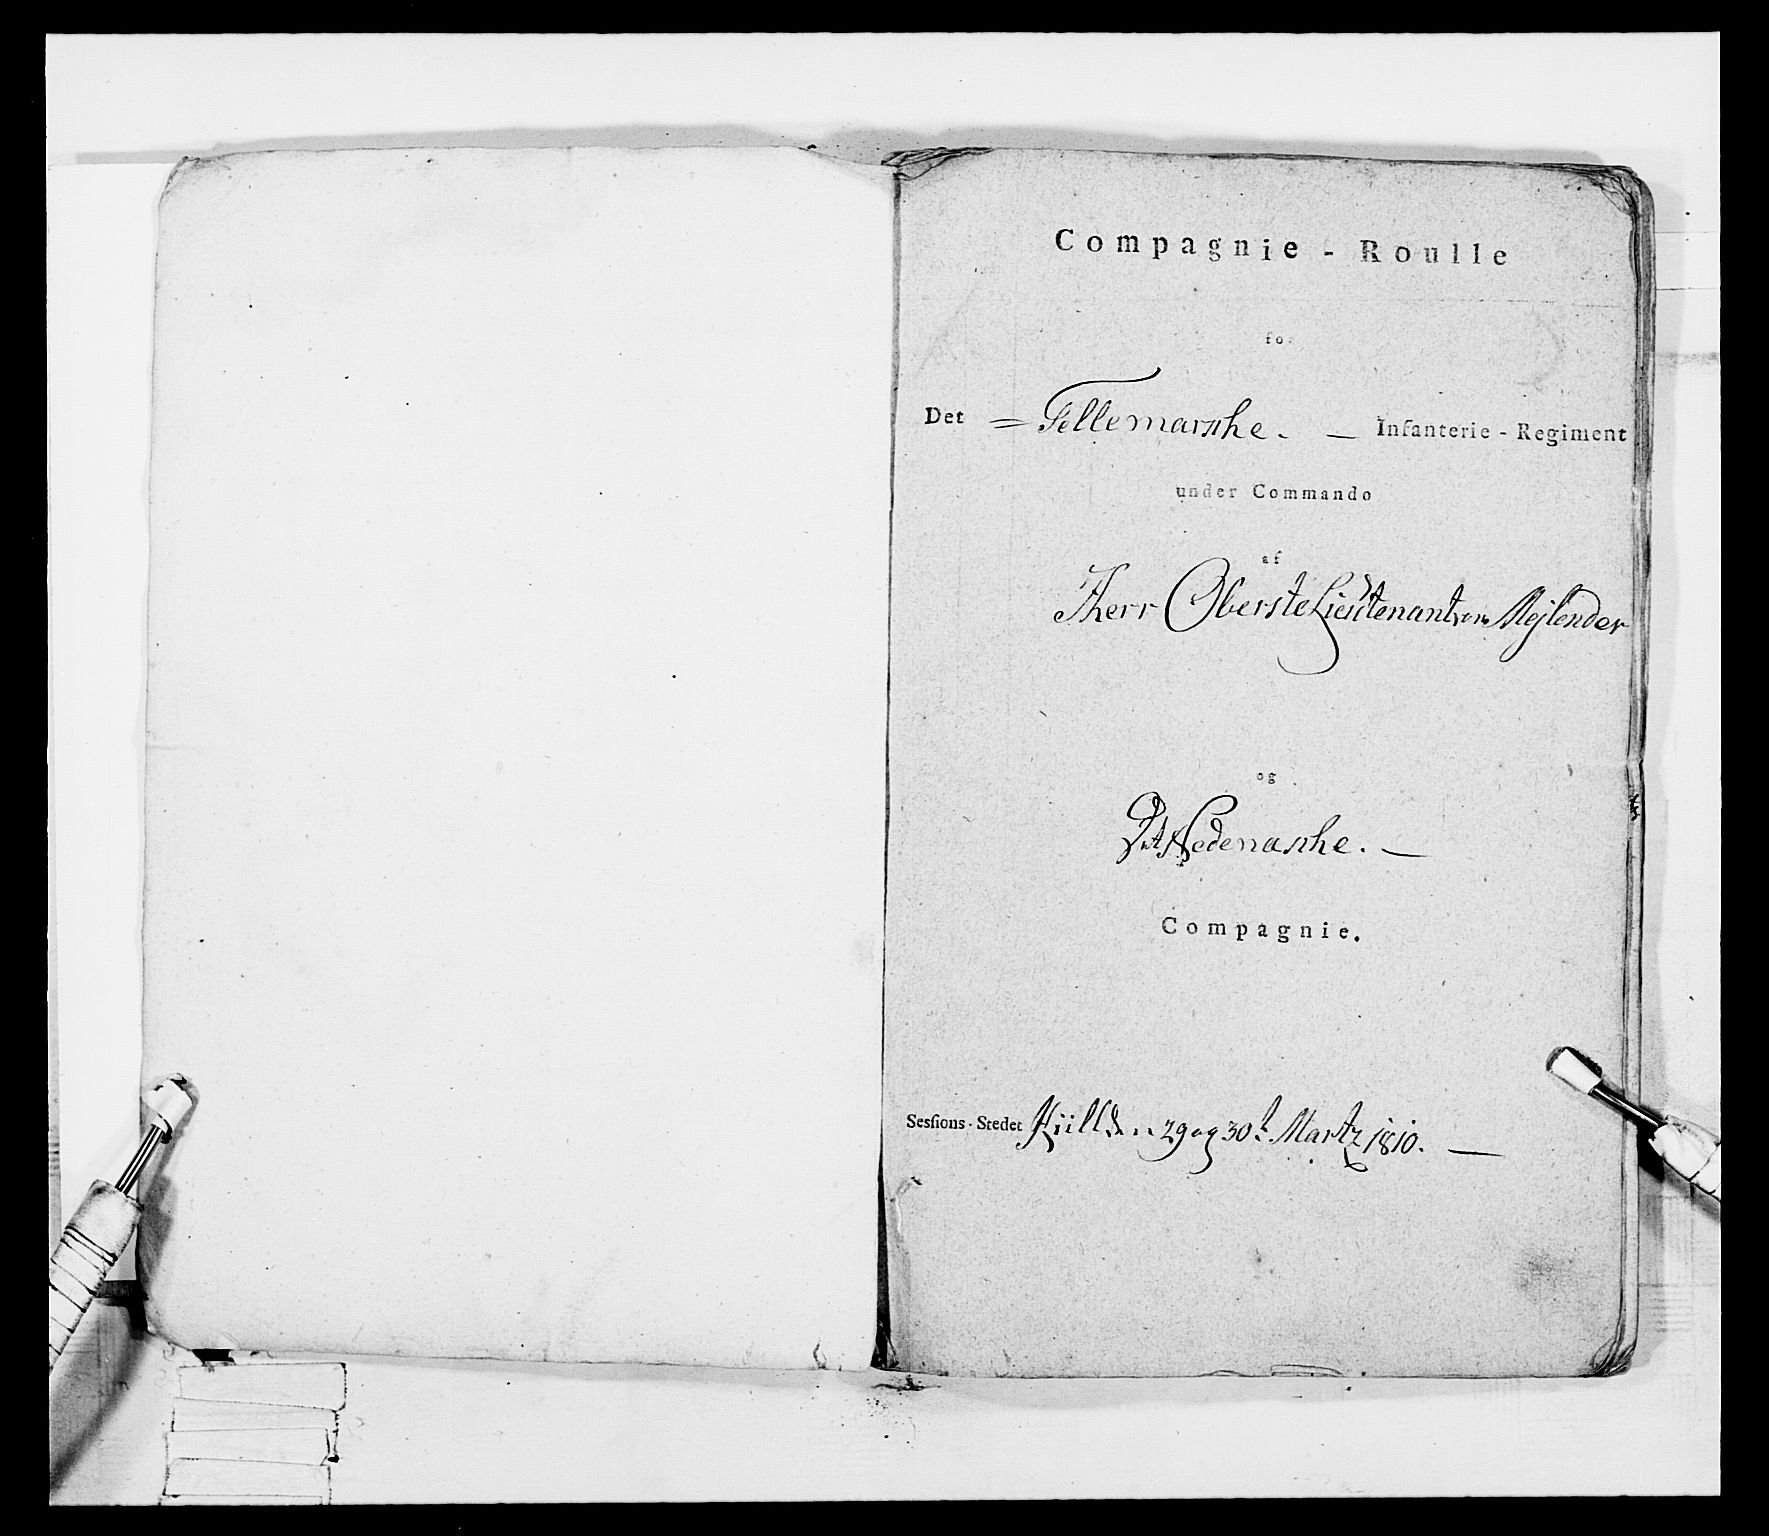 Compagnie - Roulle
for
Det = Tellemarske. — Infanterie - Regiment
under Commando
af
Herr ObersteLieutenant von Mejlender
og
Det Nedenæske. —
Compagnie.
Sessions-Stedet Hiill den 29 og 30t Martz 1810. —